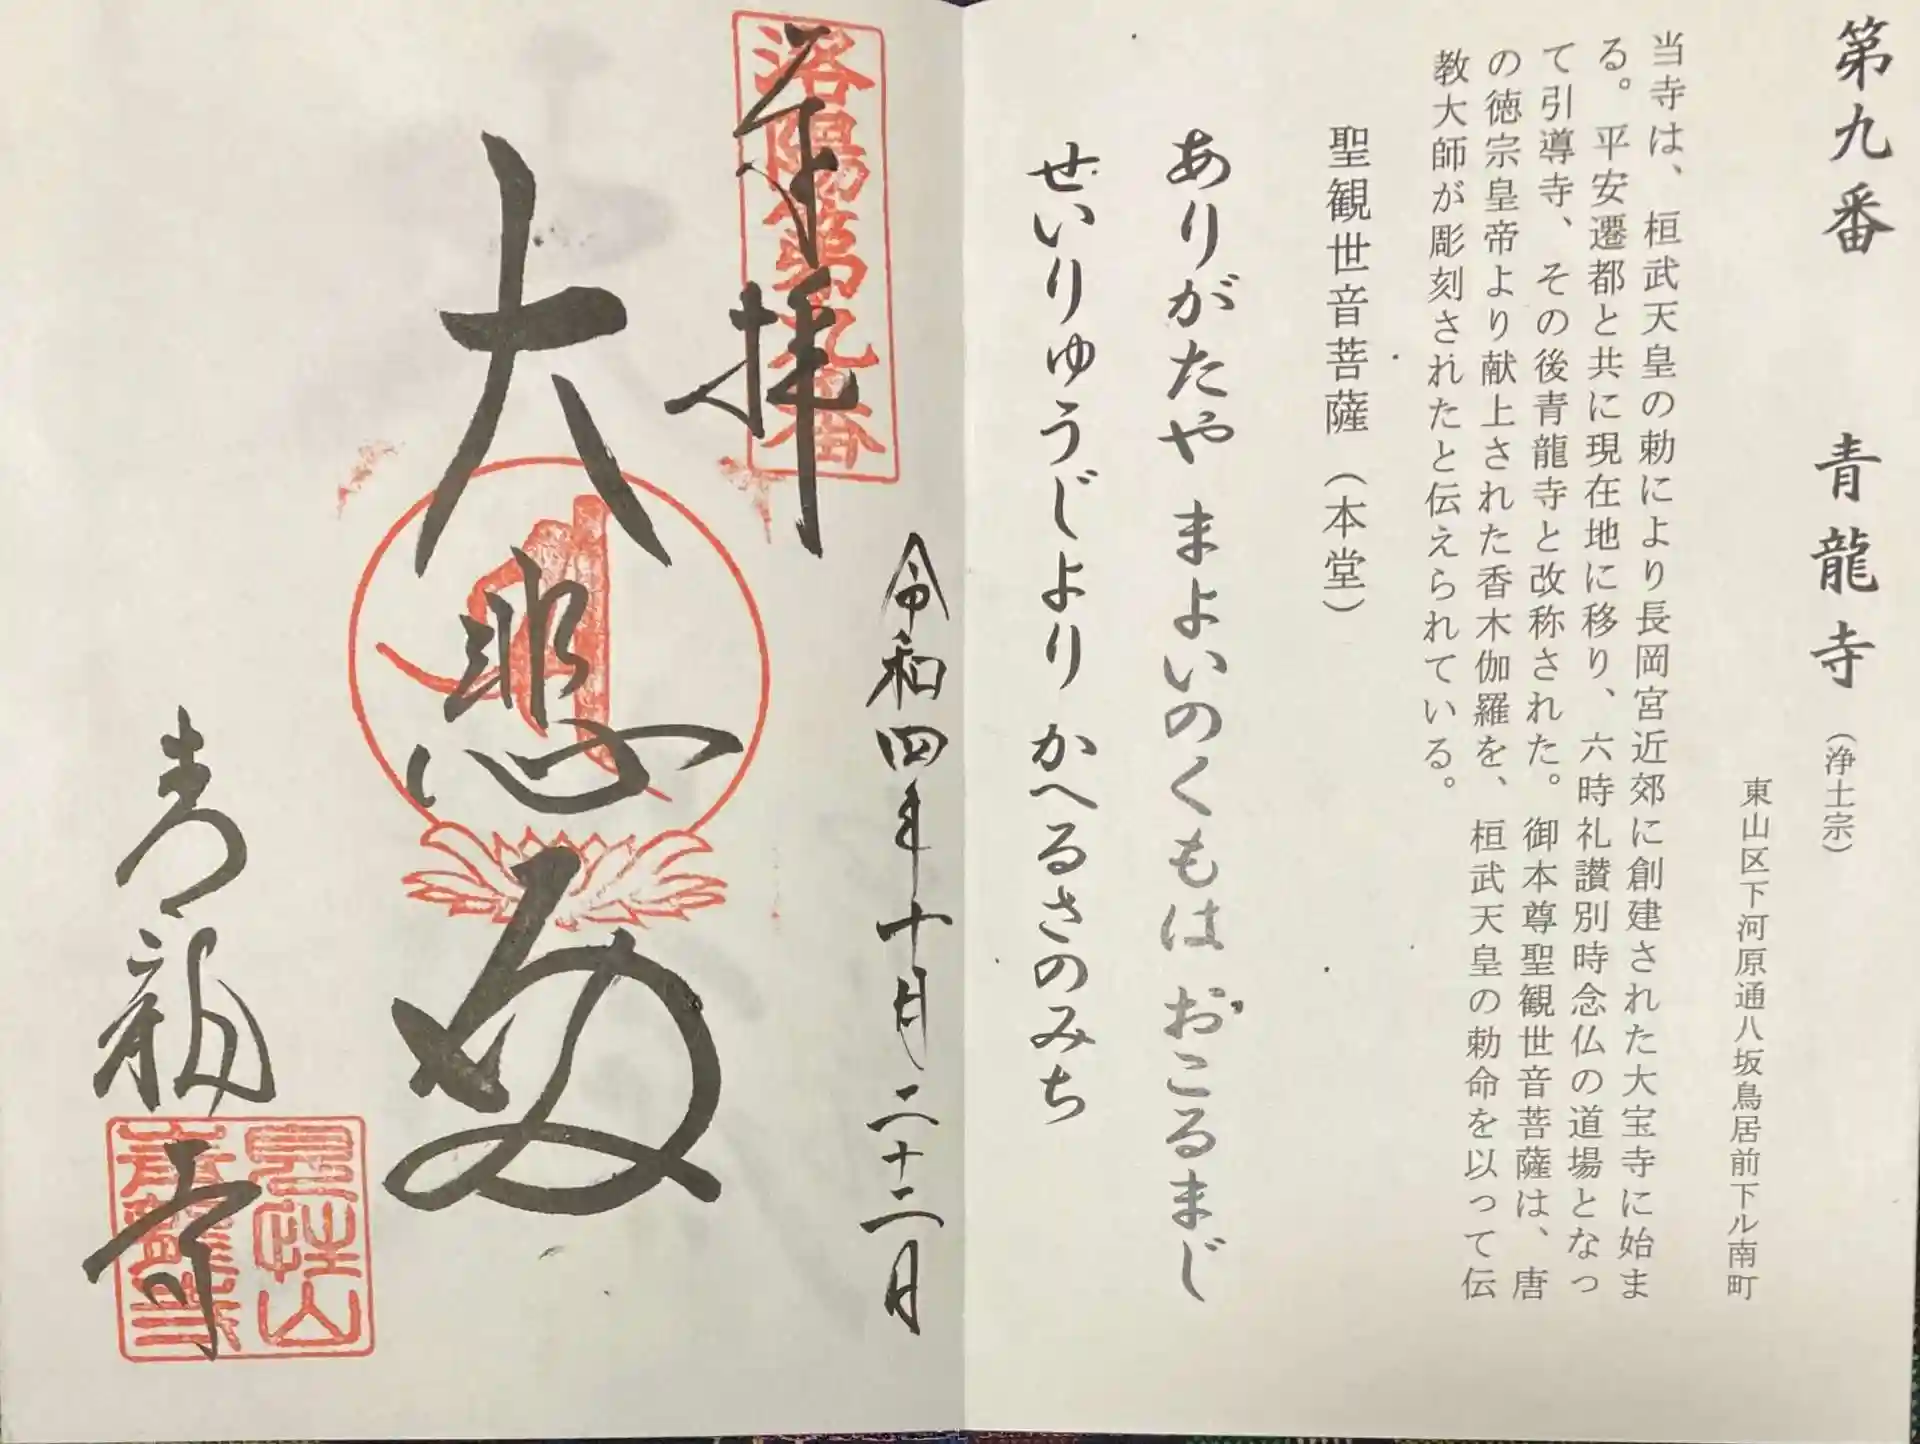 第九番 青龍寺(浄土宗)
東山区下河原通八坂鳥居前下ル南町
当寺は、桓武天皇の勅により長岡宮近郊に創建された大宝寺に始ま
る。平安遷都と共に現在地に移り、六時礼讃別時念仏の道場となっ
て引導寺、その後青龍寺と改称された。御本尊聖観世音菩薩は、唐
の徳宗皇帝より献上された香木伽羅を、桓武天皇の勅命を以って伝
教大師が彫刻されたと伝えられている。
聖観世音菩薩(本堂)
ありがたや まよいのくもは おこるまじ
せいりゅうじより かへるさのみち
洛陽第九番
奉拝
令和四年十月二十二日
大悲殿
青龍寺
見性山
青龍寺